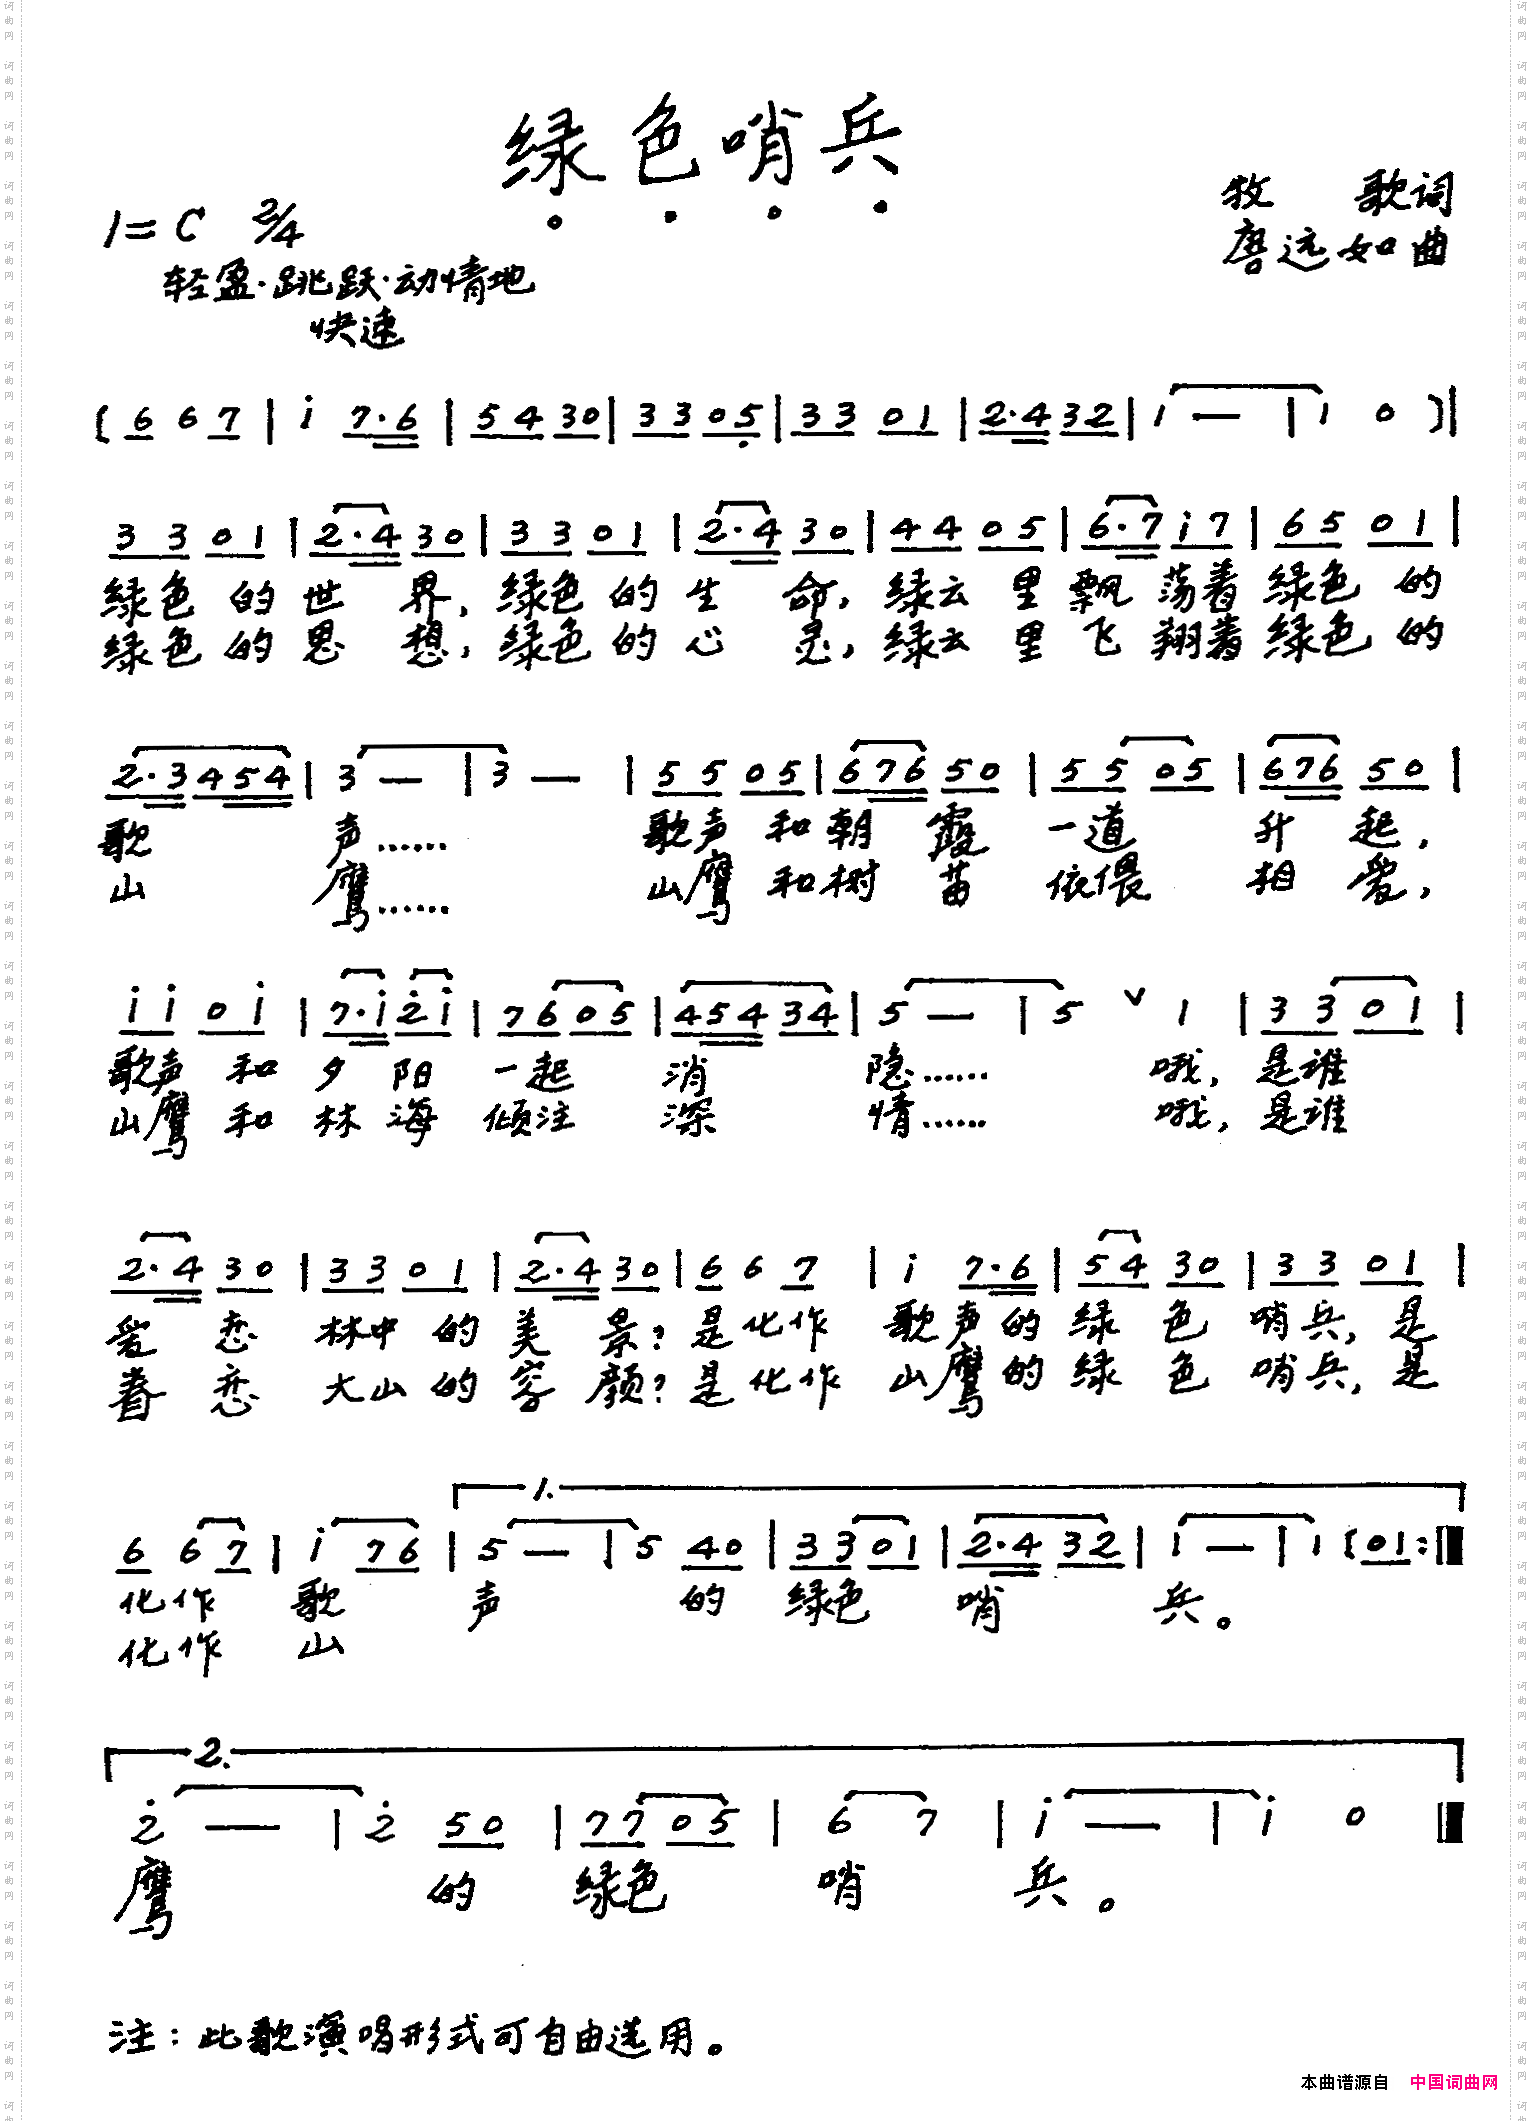 绿色哨兵
1=C 2/4
牧 歌词
唐远如曲
轻盈·跳跃·动情地
快速
( 6 6 7 | i 7·6 | 5 4 3 0 | 3 3 0 5 | 3 3 0 1 | 2·4 3 2 | 1 — | 1 0 ) |
3 3 0 1 | 2·4 3 0 | 3 3 0 1 | 2·4 3 0 | 4 4 0 5 | 6·7 i 7 | 6 5 0 1 |
绿色 的 世 界, 绿色 的 生 命, 绿云 里 飘 荡着 绿色 的
绿色 的 思 想, 绿色 的 心 灵, 绿云 里 飞 翔着 绿色 的
2·3 4 5 4 | 3 — | 3 — | 5 5 0 5 | 6 7 6 5 0 | 5 5 0 5 | 6 7 6 5 0 |
歌 声…… 歌声 和 朝 霞 一道 升 起,
山 鹰…… 山鹰 和 树 苗 依偎 相 爱,
i i 0 i | 7·i 2 i | 7 6 0 5 | 4 5 4 3 4 | 5 — | 5 ∨ 1 | 3 3 0 1 |
歌声 和 夕 阳 一起 消 隐…… 哦, 是谁
山鹰 和 林 海 倾注 深 情…… 哦, 是谁
2·4 3 0 | 3 3 0 1 | 2·4 3 0 | 6 6 7 | i 7·6 | 5 4 3 0 | 3 3 0 1 |
爱 恋 林中 的 美 景? 是化作 歌声的 绿 色 哨兵, 是
眷 恋 大山 的 容 颜? 是化作 山鹰的 绿 色 哨兵, 是
1.
6 6 7 | i 7 6 | 5 — | 5 4 0 | 3 3 0 1 | 2·4 3 2 | 1 — | 1 ( 0 1 :|
化作 歌 声 的 绿色 哨 兵。
化作 山
2.
2 — | 2 5 0 | 7 7 0 5 | 6 7 | i — | i 0 |
鹰 的 绿色 哨 兵。
注:此歌演唱形式可自由选用。
本曲谱源自 中国词曲网